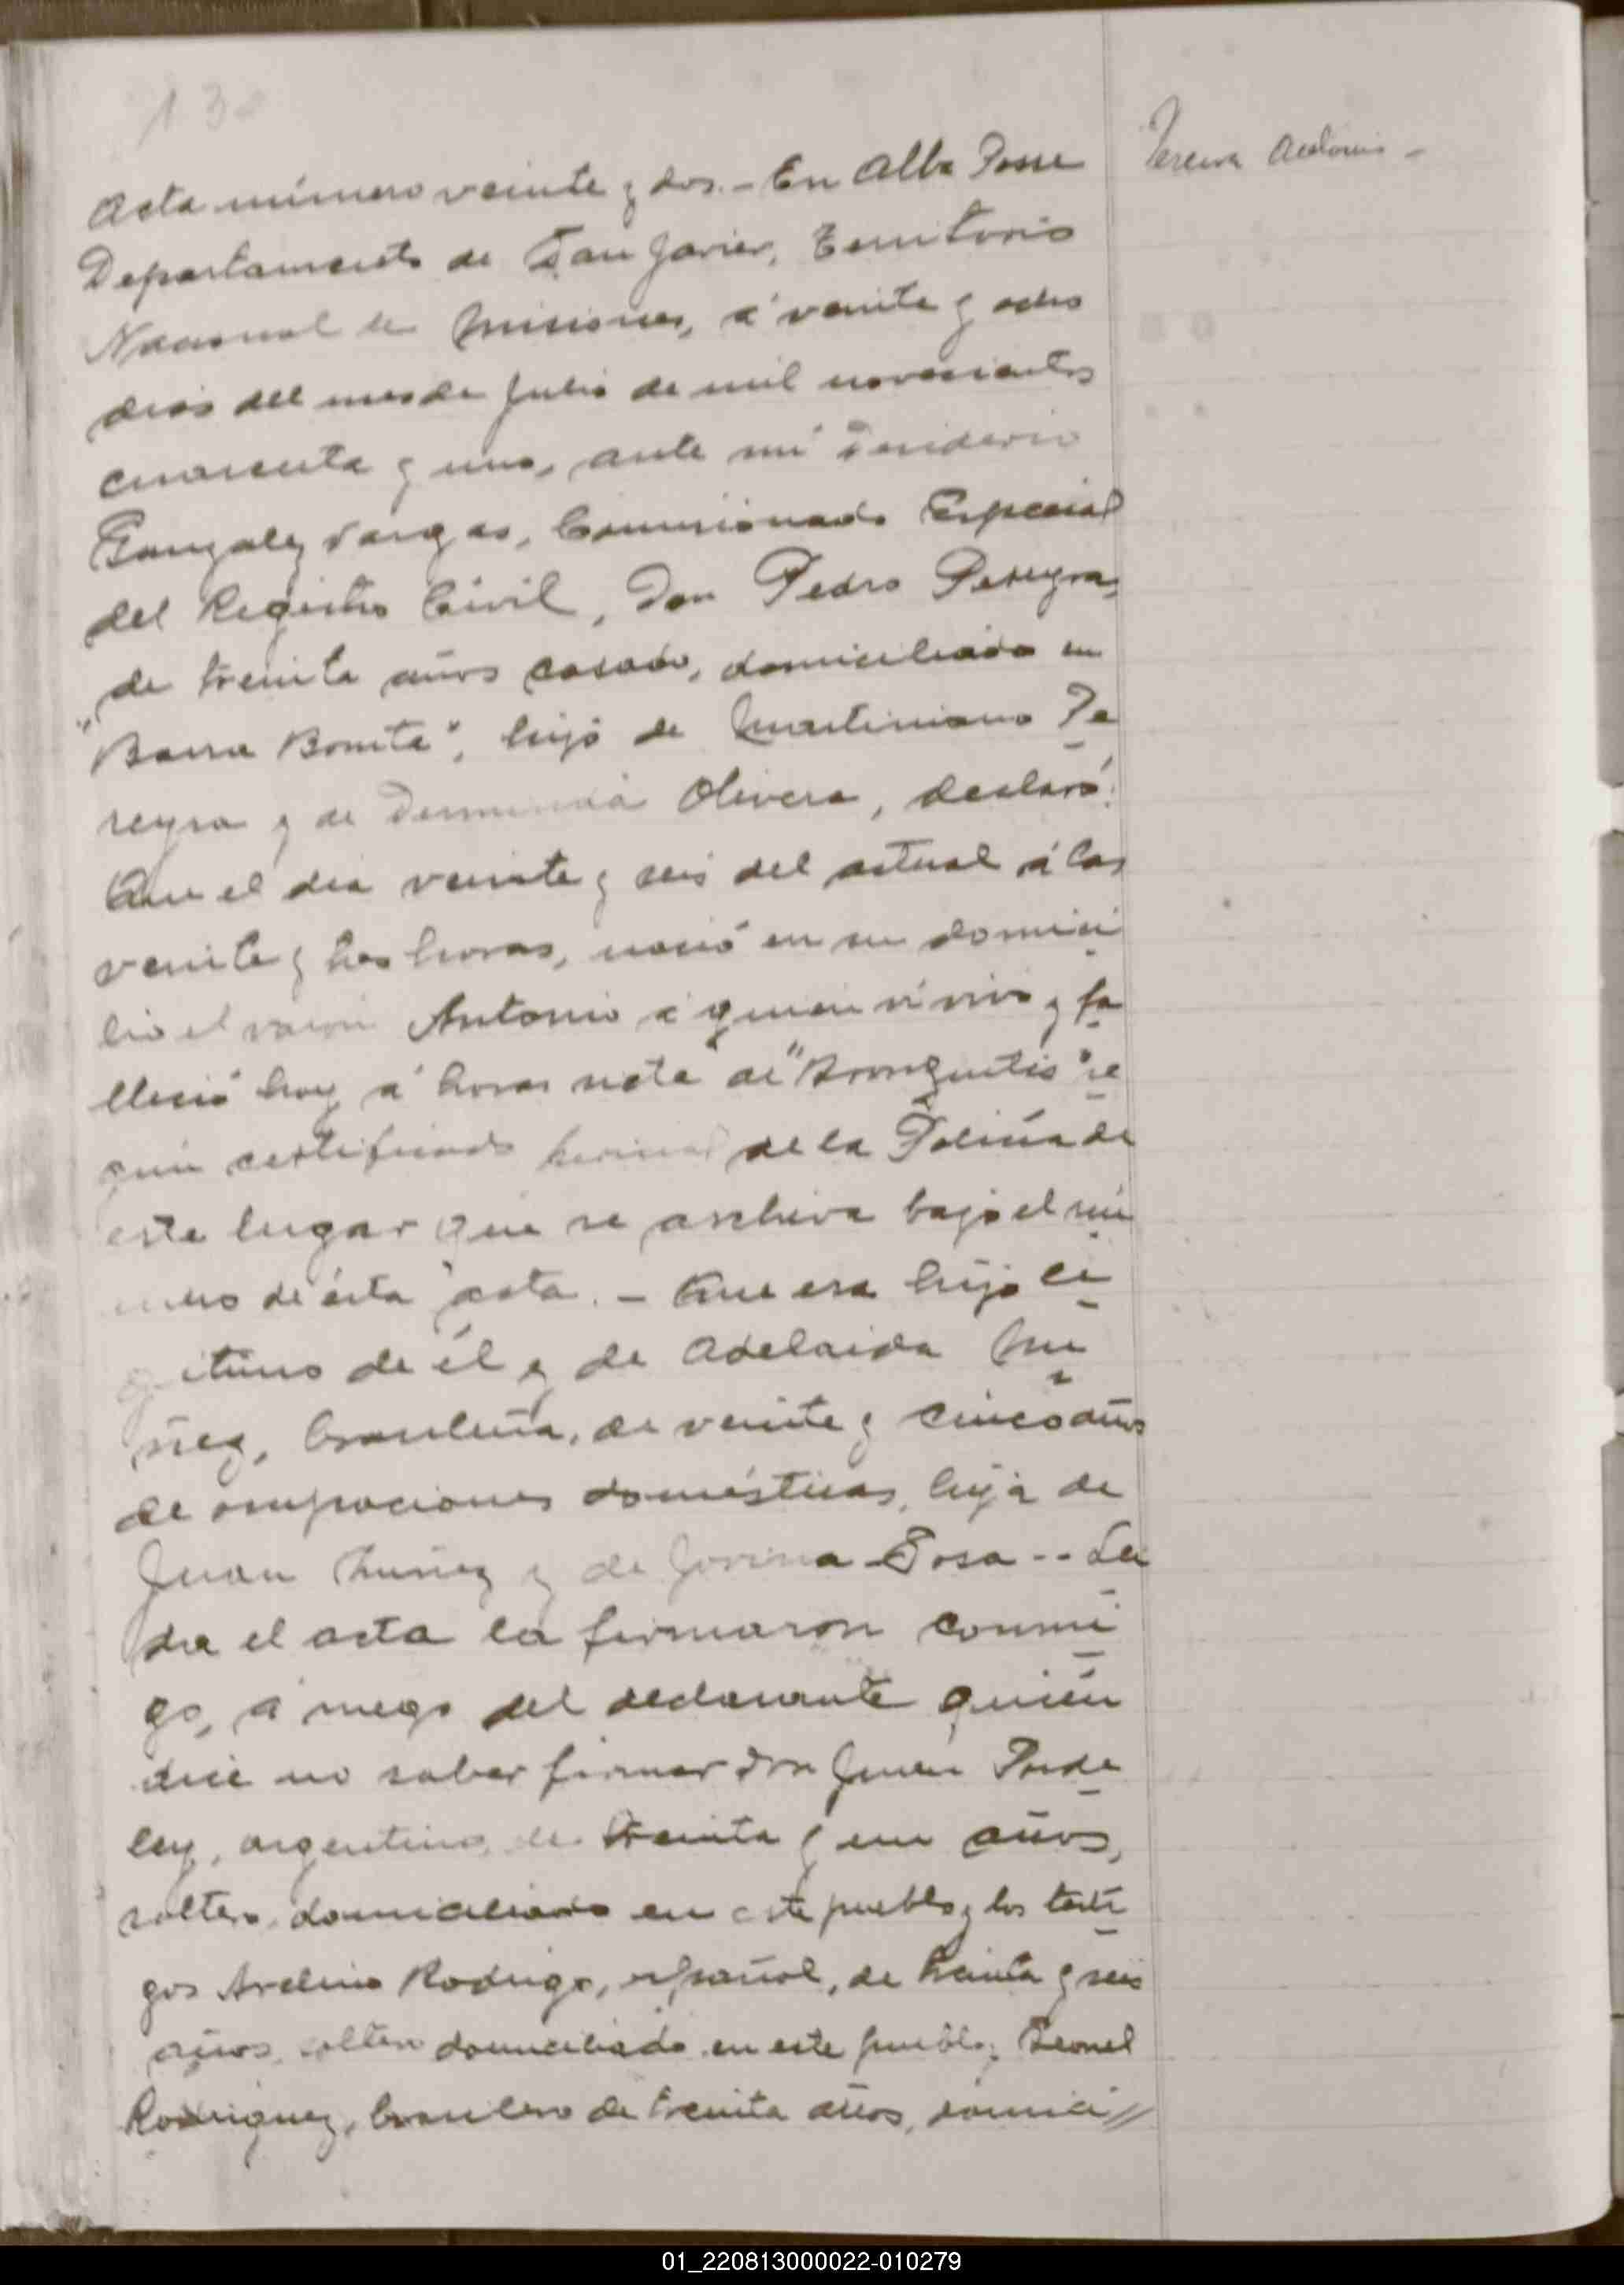 13
Pereira Antonio -
Acta número veinte y dos. - En Alba Posse
Departamento de San Javier, Territorio
Nacional de Misiones, á veinte y ocho
dias del mes de Julio de mil novecientos
cuarenta y uno, ante mi Desiderio
Gonzalez Vargas, Comisionado Especial
del Registro Civil, Don Pedro Pereyra,
de treinta años casado, domiciliado en
"Barra Bonita", hijo de Martiniano Pe
reyra y de Olivera, declaró:
Que el dia veinte y seis del actual á las
veinte y tres horas, nació en su domici
lio el varón Antonio á quien ví vivo y fa
lleció hoy á horas siete de "Bronquitis" se
gún certificado de la Policía de
este lugar que se archiva bajo el nú
mero de ésta acta. - Que era hijo le
gitimo de él y de Adelaida Nu
ñez, brasileña, de veinte y cinco años
de ocupaciones domésticas, hija de
Juan Nuñez y de Jovina Sosa -- Lei
da el acta la firmaron conmi
go, á ruego del declarante quién
dice no saber firmar don Juan
argentino, de treinta y un años,
soltero, domiciliado en este pueblo y los testi
gos Avelino Rodrigo, español, de treinta y seis
años, soltero domiciliado en este pueblo y Leonel
Rodriguez, brasilero de treinta años, domici//
01_220813000022-010279